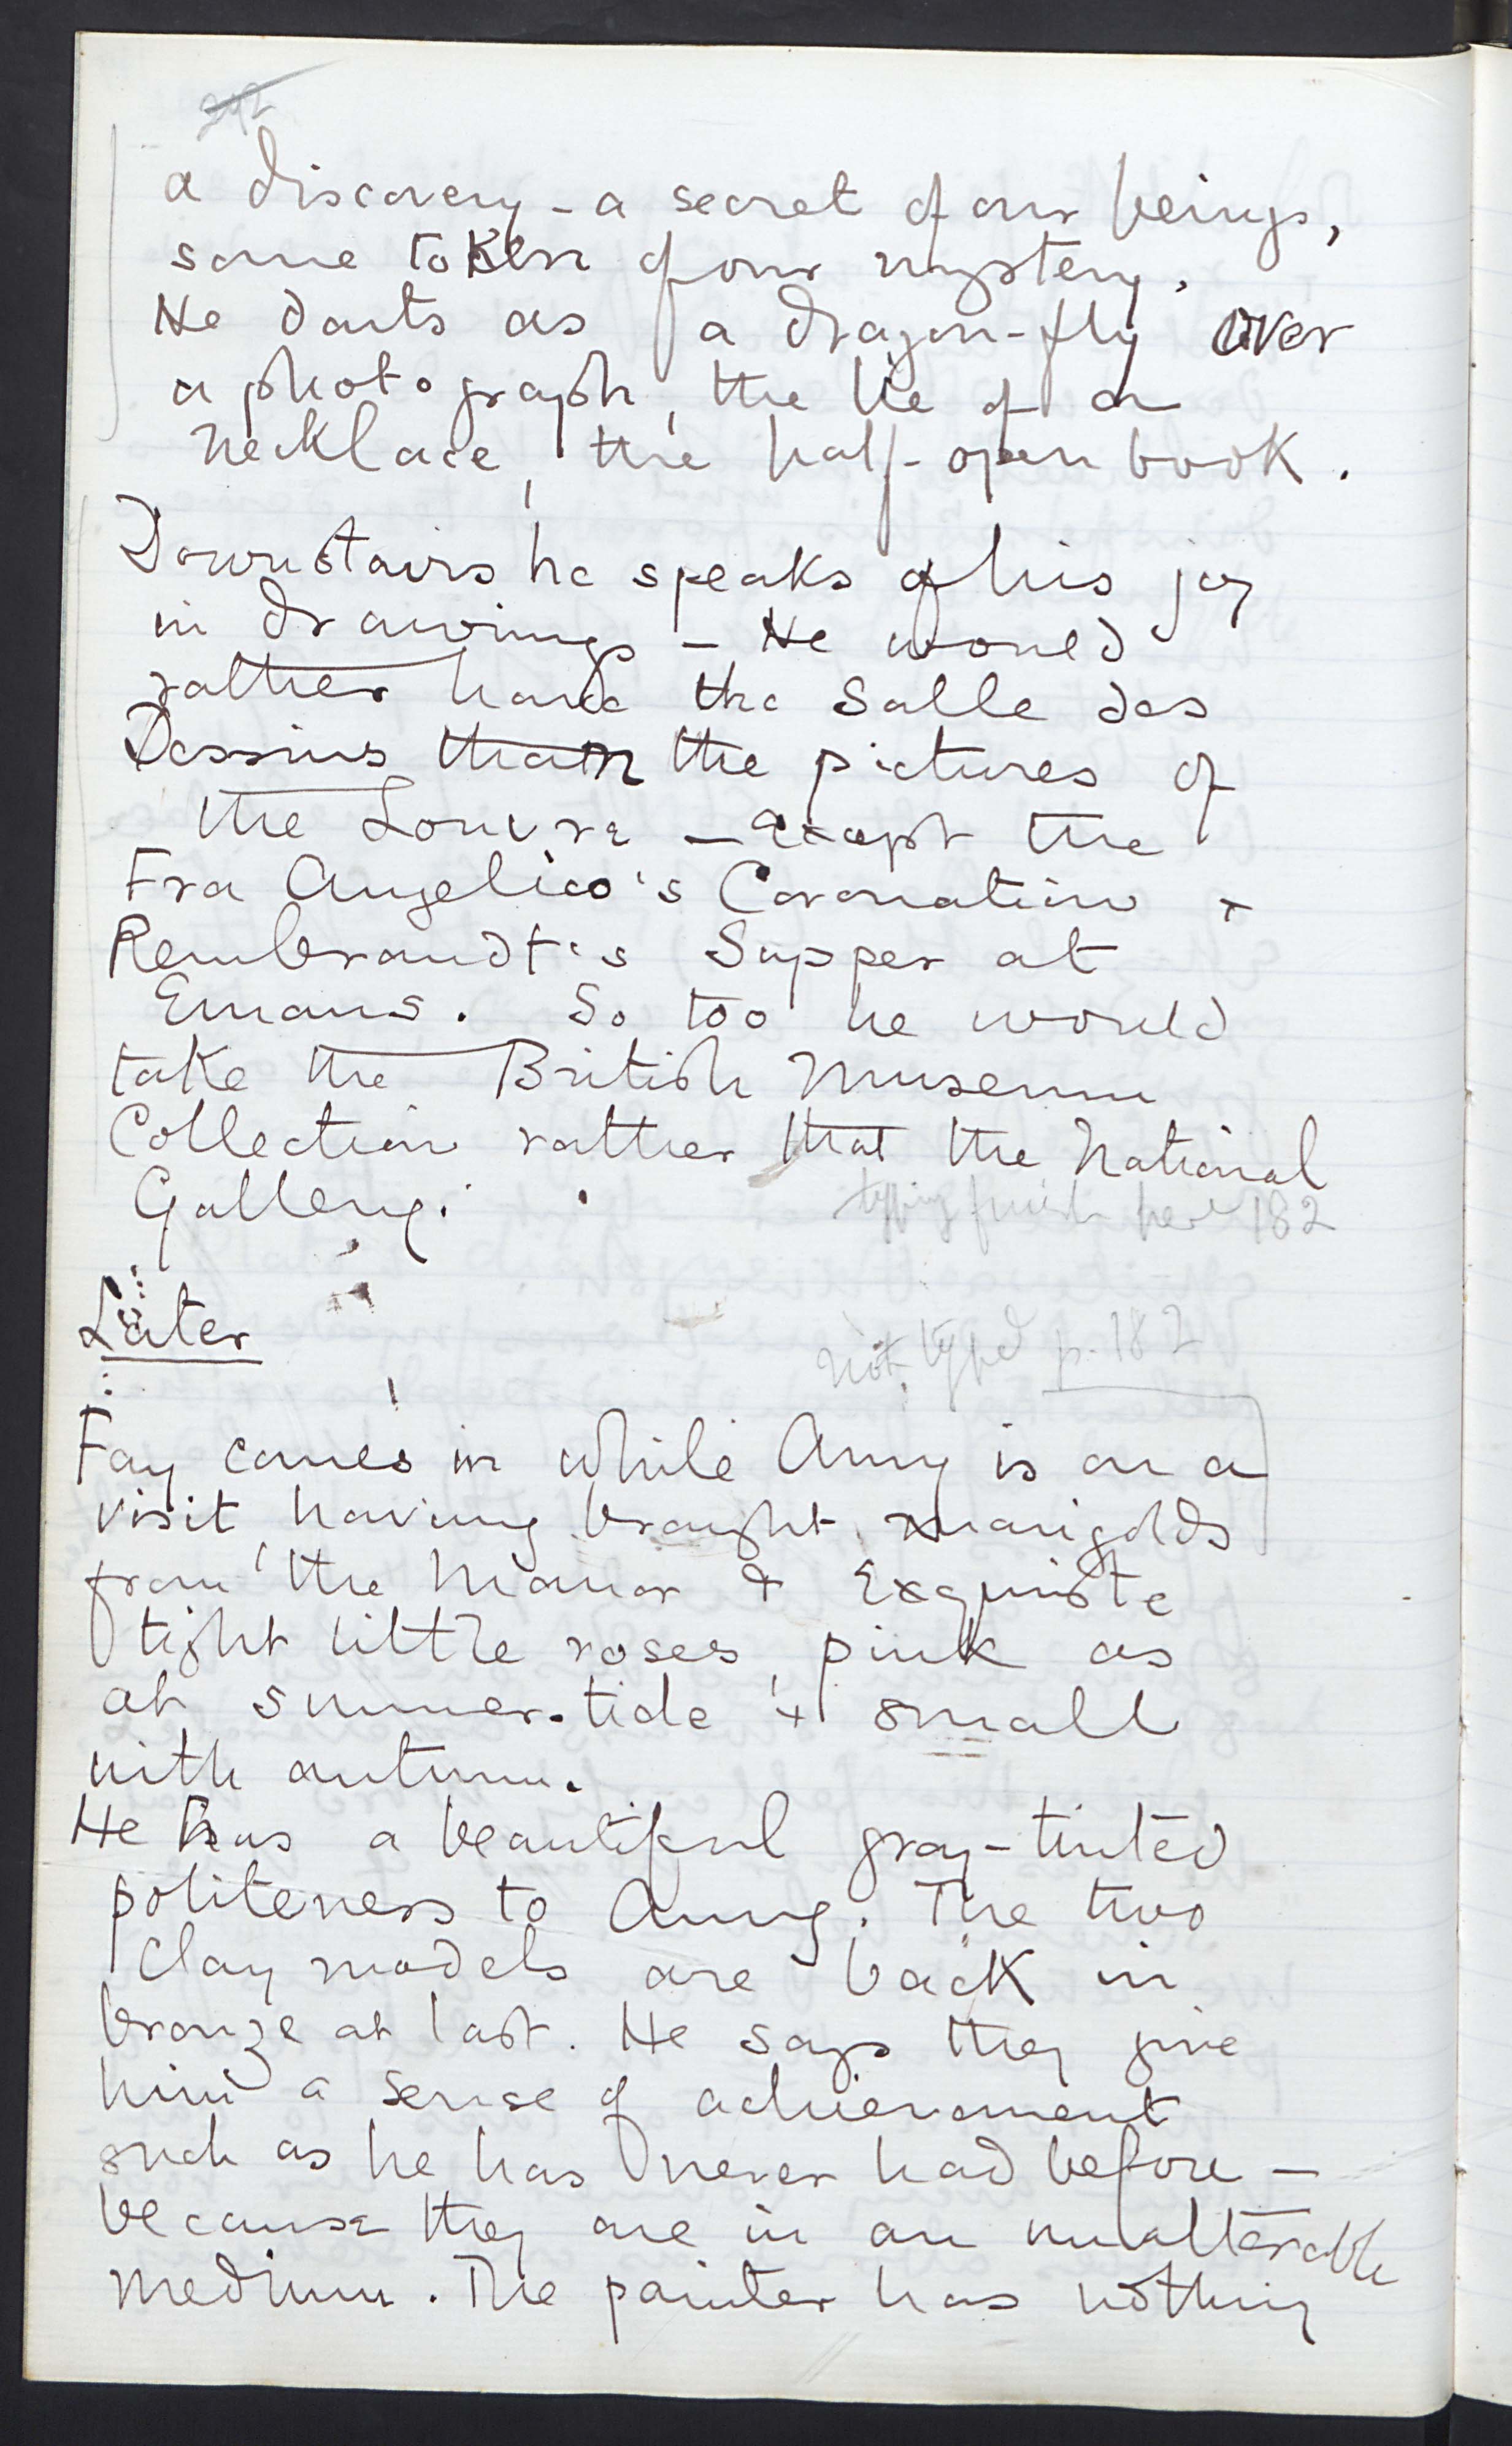 a discovery - a secret of our beings,
some token of our mystery.
He darts as a dragon-fly over
a photograph, the lie of a
necklace, the half-open book.
Downstairs he speaks of his joy
in drawings - He would
rather have the Salle des
Dessins than the pictures of
the Louvre - except the
Fra Angelico's Coronation +
Rembrandt's Supper at
Emaus. So too he would
take the British Museum
Collection rather that the National
Gallery.
typing finish here 182
Later
not typed p. 182
Fay comes in while Amy is on a
visit, having brought marigolds
from the Manor & exquisite
tight little roses, pink as
at summer-tide + small
with autumn.
He has a beautiful gray-tinted
politeness to Amy. The two
clay models are back in
bronze at last. He says they give
him a sense of achievement
such as he has never had before -
because they are in an unalterable
medium. The painter has nothing